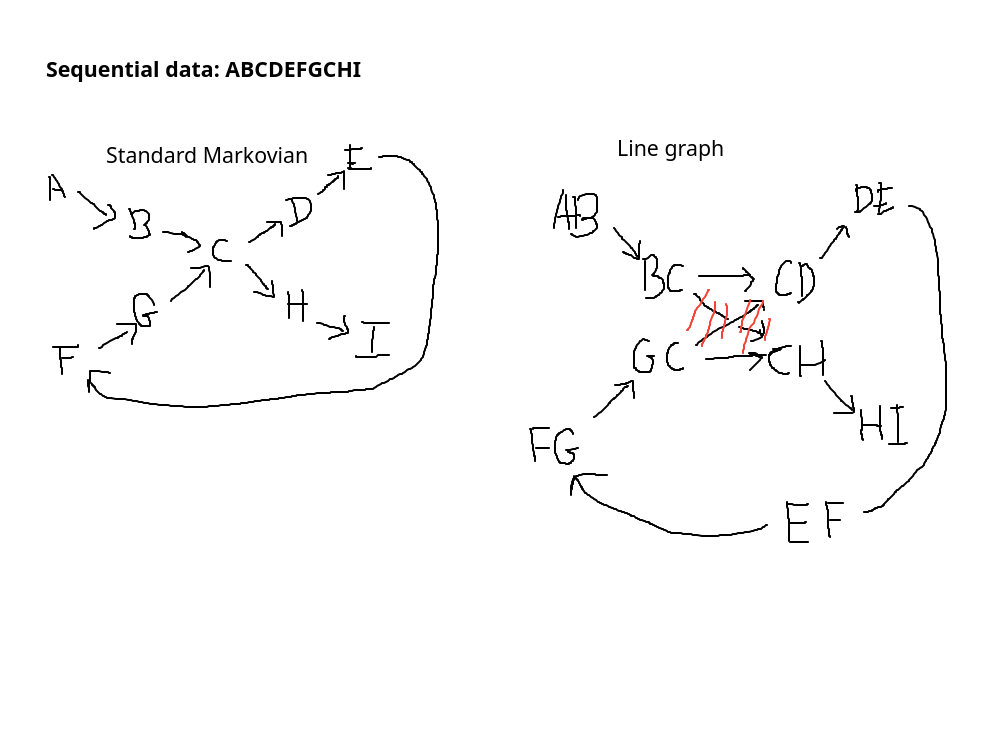 Sequential data: ABCDEFGCHI
Standard Markovian
A
B
C
D
E
F
G
H
I
Line graph
AB
BC
CD
DE
GC
CH
FG
HI
EF